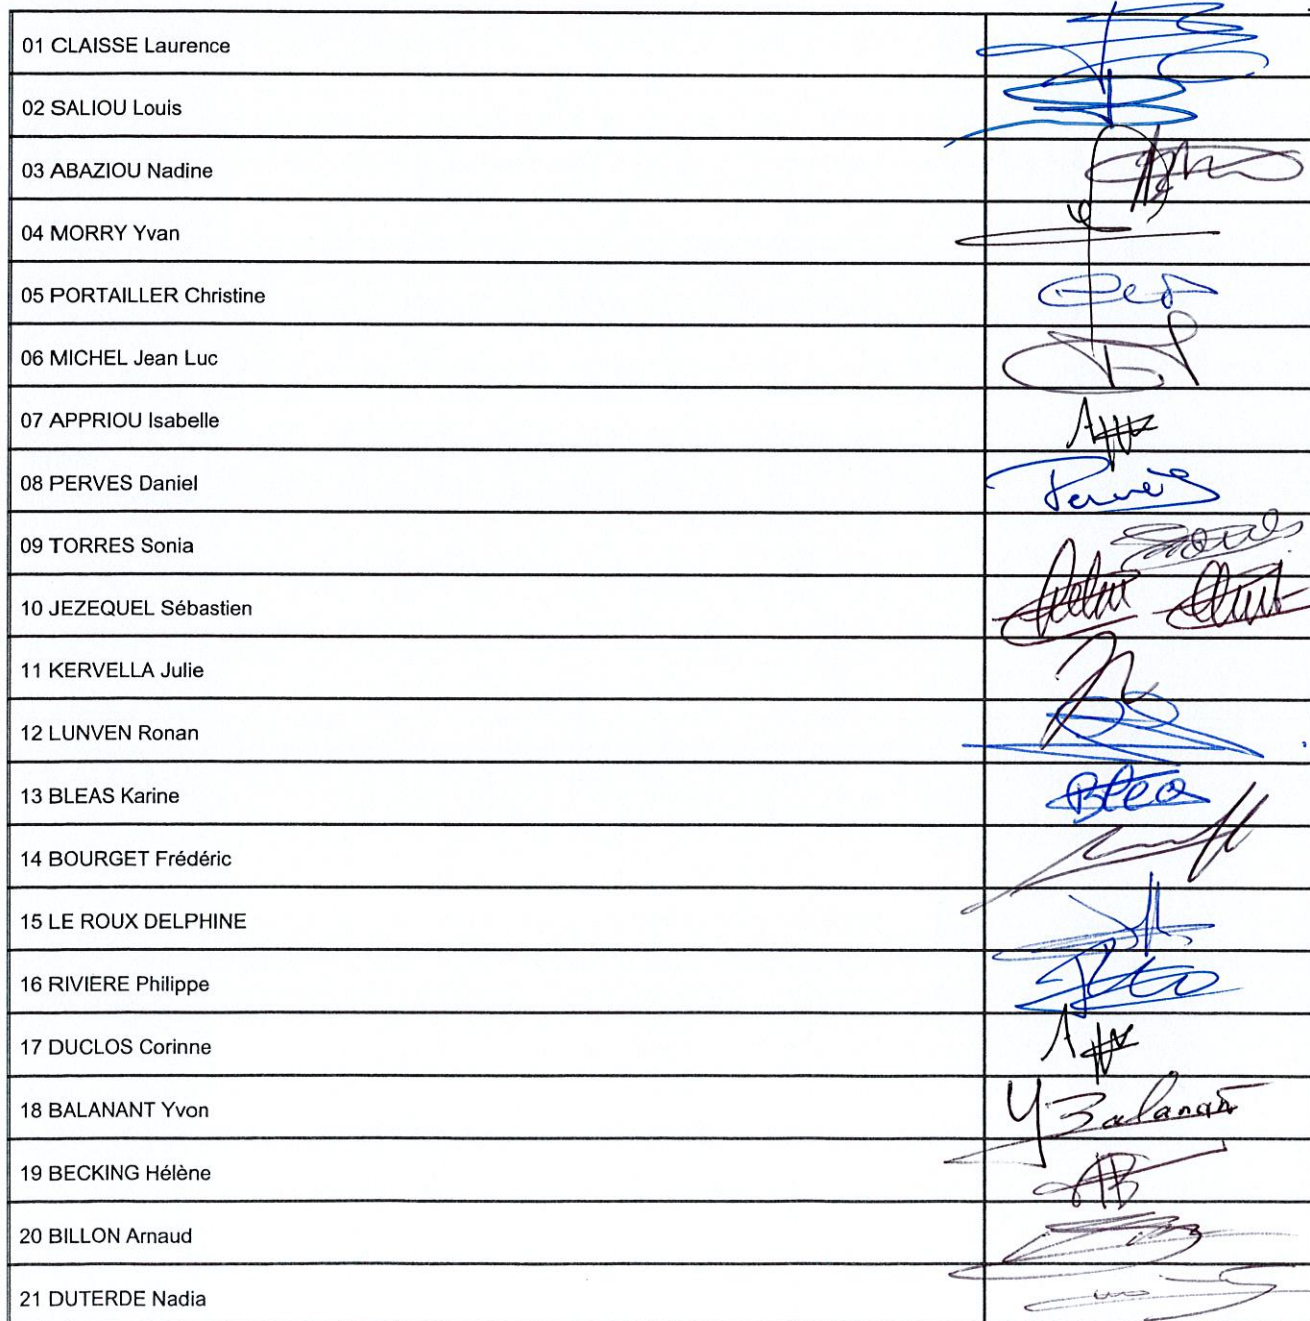 01 CLAISSE Laurence
02 SALIOU Louis
03 ABAZIOU Nadine
04 MORRY Yvan
05 PORTAILLER Christine
06 MICHEL Jean Luc
07 APPRIOU Isabelle
08 PERVES Daniel
09 TORRES Sonia
10 JEZEQUEL Sébastien
11 KERVELLA Julie
12 LUNVEN Ronan
13 BLEAS Karine
14 BOURGET Frédéric
15 LE ROUX DELPHINE
16 RIVIERE Philippe
17 DUCLOS Corinne
18 BALANANT Yvon Y Balanant
19 BECKING Hélène
20 BILLON Arnaud
21 DUTERDE Nadia